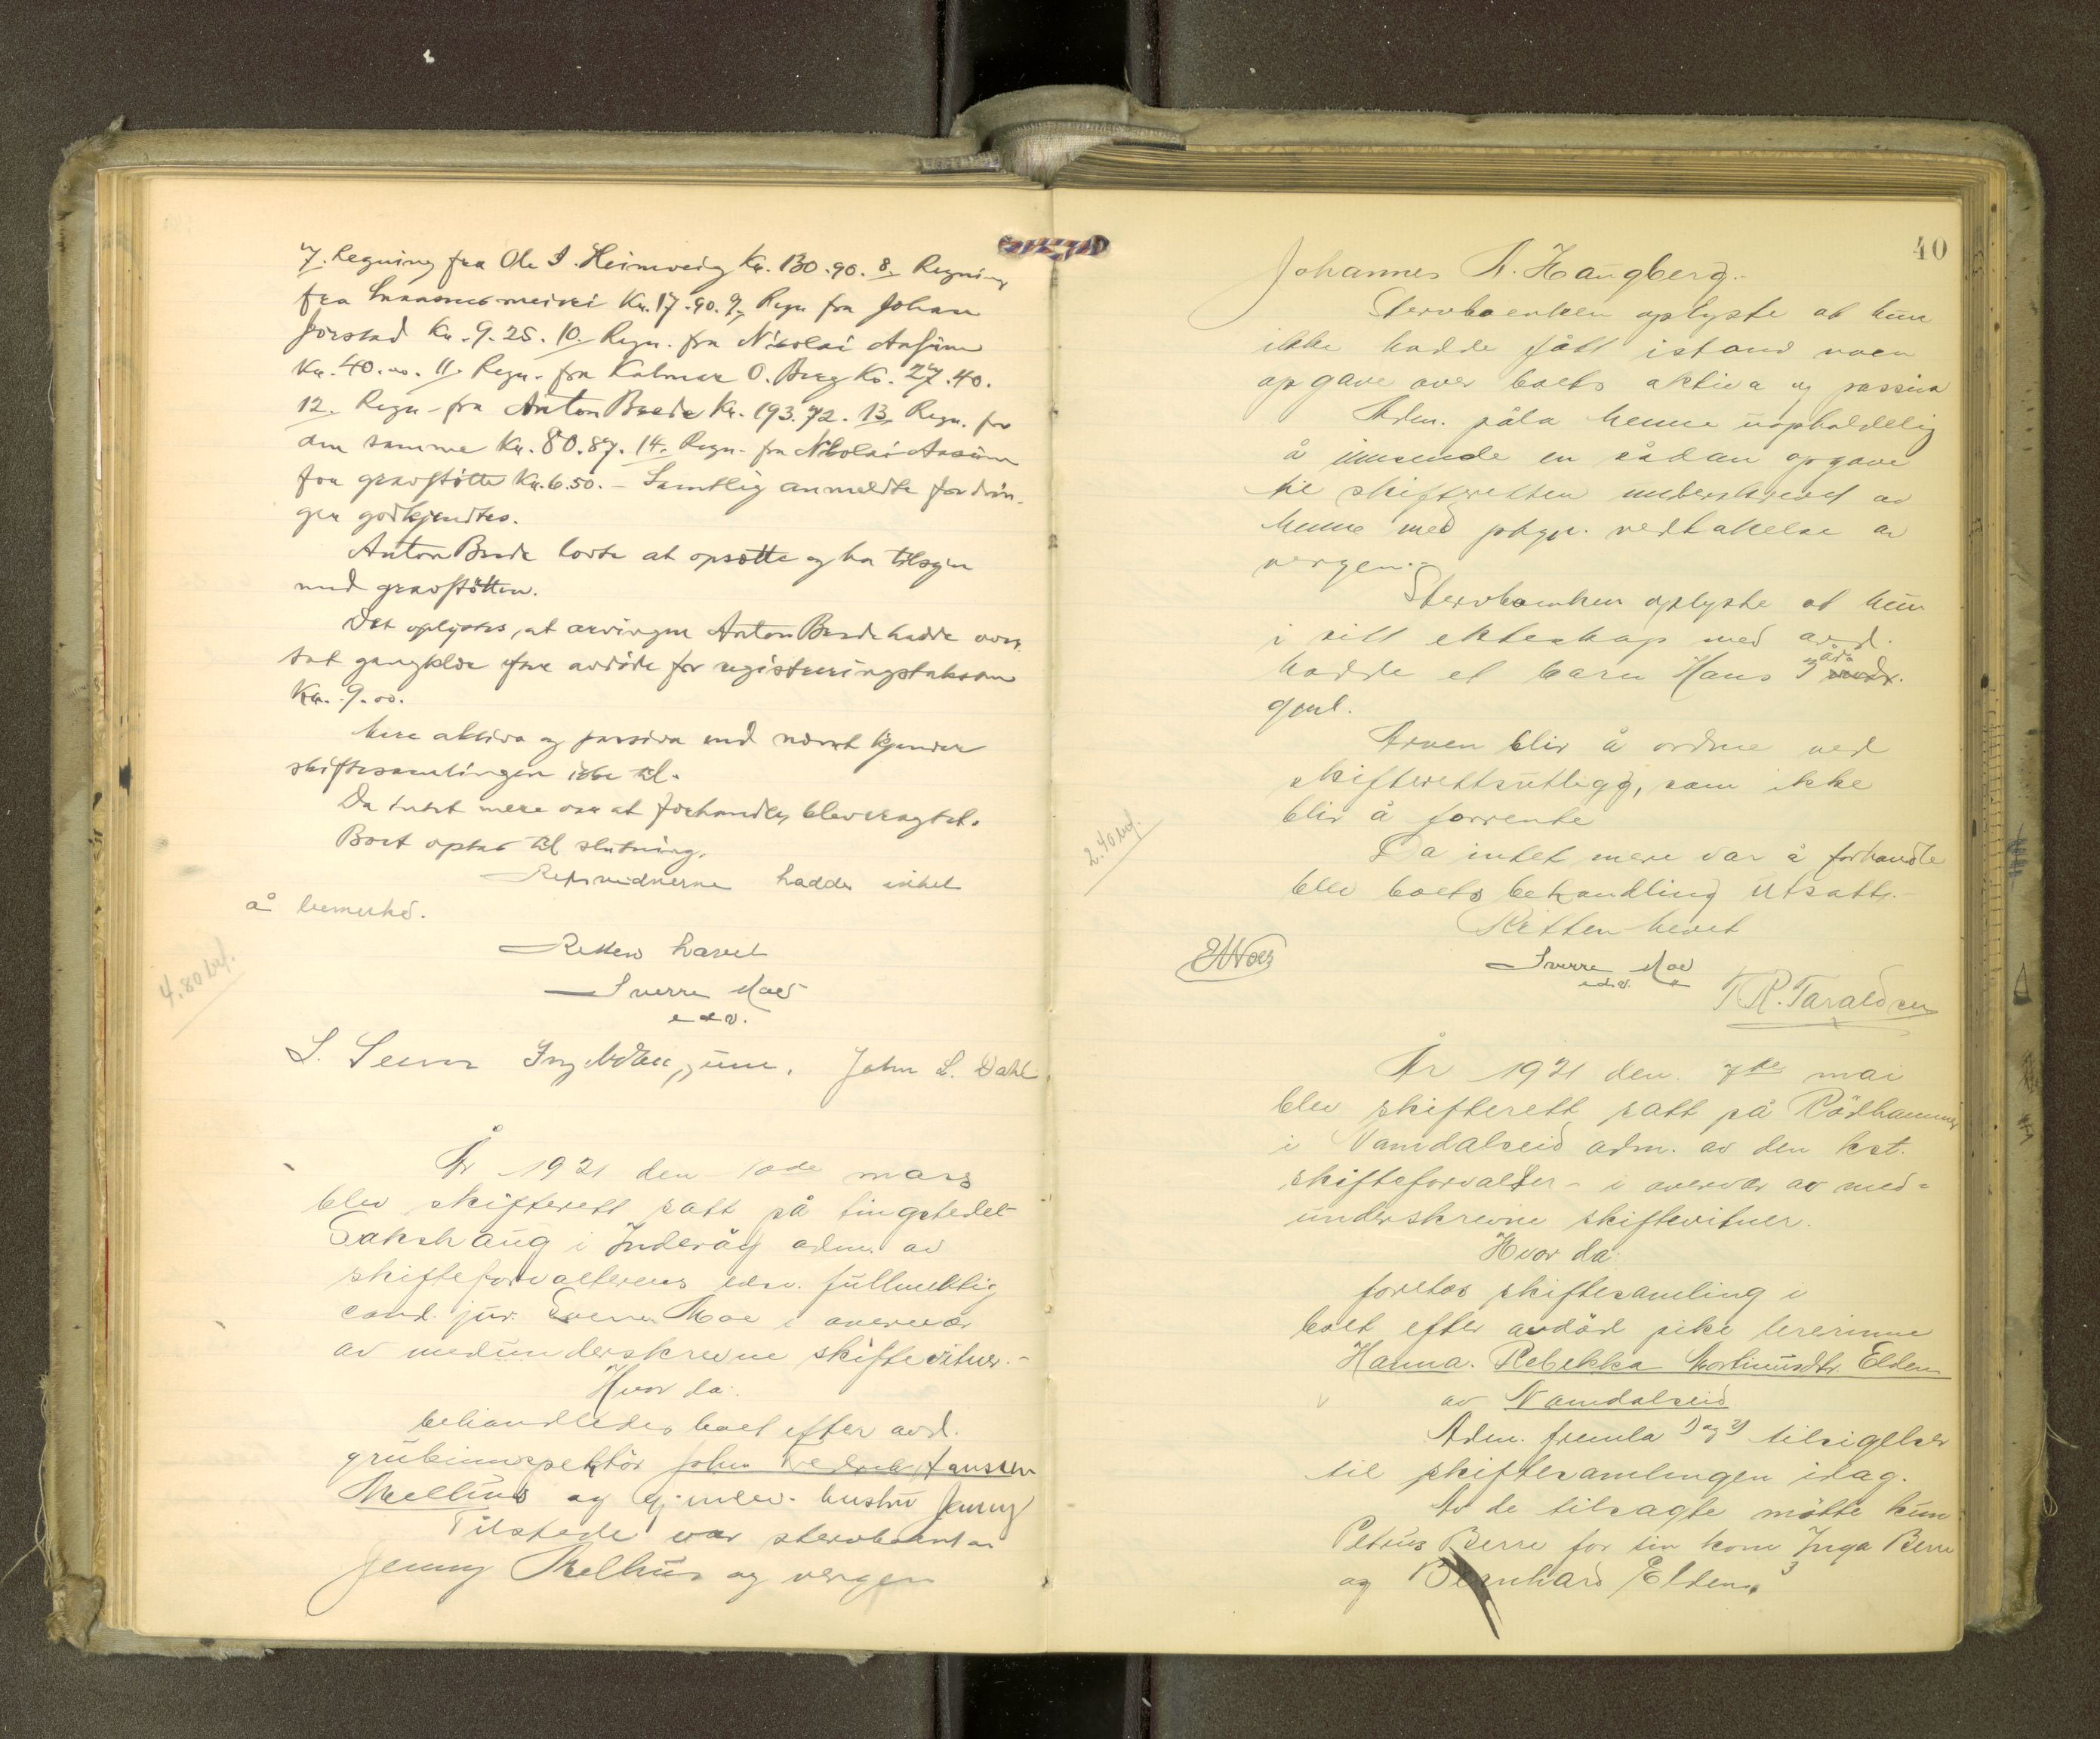 7. Regning fra Ole I. Heimveig Kr. 130.90. 8. Regning
fra Snaasameieri Kr. 17.90. 9. Regn. fra Johan
Jørstad Kr. 9.25. 10. Regn. fra Nikolai Aasum
Kr. 40.00. 11. Regn. fra Kalmar O. Berg Kr. 27.40.
12. Regn. fra Anton Brede Kr. 193.72. 13. Regn. fra
den samme Kr. 80.87. 14. Regn. fra Nikolai Aasum
for gravstøtte Kr. 6.50. – Samtlig anmeldte fordrin-
ger godkjendtes.
Anton Brede lovte at opsætte og ha tilsyn
med gravstøtten.
Det oplystes, at arvingen Anton Brede hadde over-
tat gangklær efter avdøde for registreringstaksten
Kr. 9.00.
Mere aktiva og passiva end nævnt kjender
skiftesamlingen ikke til.
Da intet mere var at forhandle, blev
Boet optas til slutning.
Rettsvidnerne hadde intet
å bemerke.
Retten hævet
Sverre Moe
e.d.v.
S. Seem John L. Dahl
4.80 bet.
År 1921 den 10de mars
blev skifterett satt på tingstedet
Sakshaug i Inderøy adm. av
skifteforvalterens edsv. fullmektig
cand. jur. Sverre Moe i overvær
av medunderskrevne skiftevitner.-
Hvor da:
behandledes boet efter avd.
grubeinspektør John Fredrik Hanssen
Melhus og gjenlev. hustru Jenny
Tilstede var stervboenken
Jenny Melhus og vergen
40
Johannes A. Haugberg.-
Stervboenken oplyste at hun
ikke hadde fått istand noen
opgave over boets aktiva og passiva
Adm. påla henne uopholdelig
å innsende en sådan opgave
til skifteretten underskrevet av
henne med påtegn. vedtakelse av
vergen.-
Stervboenken oplyste at hun
i sitt ekteskap med avd.
hadde et barn Hans 3
gml.
Arven blir å ordne ved
skifterettsutlegg, som ikke
blir å forrente
Da intet mere var å forhandle
blev boets behandling utsatt.-
Retten hevet
2.40 bet.
Sverre Moe
e.d.v.
T. R. Taraldsen
År 1921 den 7de mai
blev skifterett satt på Rödhammer
i Namdalseid adm. av den kst.
skifteforvalter - i overvær av med-
underskrevne skiftevitner.
Hvor da:
foretas skiftesamling i
boet efter avdöd pike lererinne
Hanna Rebekka Mortinusdtr. Elden
av Namdalseid
Adm. fremla 1) og 2) tilsigelser
til skiftesamlingen idag.
Av de tilsagte møtte kun
Petrus Berre for sin kone Inga Berre
og Bernhard Elden.